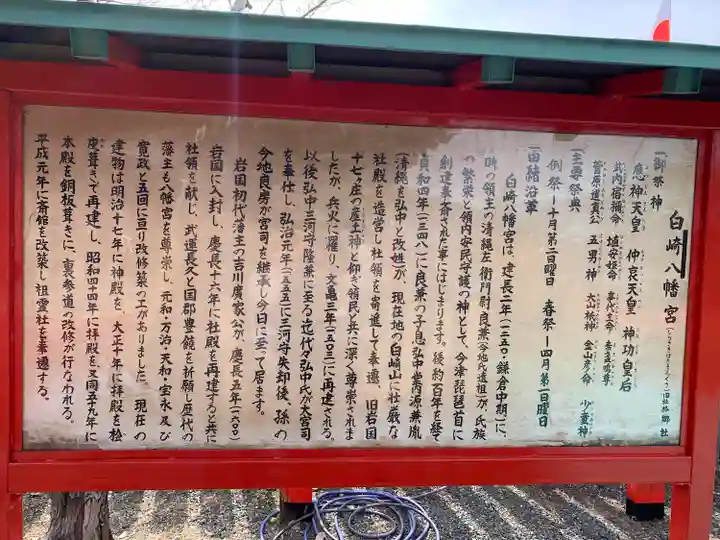 白崎八幡宮
旧社格 郷社
一、御祭神
應神天皇 仲哀天皇 神功皇后
武内宿禰命 埴安姫命 事代主命
菅原道真公 五男神 大山祇神 金山彦命 少童神
一、主要祭典
例祭ー十月第二日曜日 春祭ー四月第二日曜日
一、由緒沿革
白崎八幡宮は、建長二年(一二五〇・鎌倉中期)に、
時の領主の清縄左衛門尉良兼(今地氏遠祖)が、氏族
の繁栄と領内安民守護の神として、今津琵琶首に
創建奉斎された事にはじまります。後約百年を経て
貞和四年(一三四八)に良兼の子息弘中常源兼胤
(清縄を弘中と改姓)が、現在地の白崎山に壮厳な
社殿を造営し社領を寄進して奉遷、旧岩国
十七ヶ庄の産土神と仰ぎ領民と共に深く尊崇されま
したが、兵火に罹り、文亀三年(一五〇三)に再建される。
以後弘中三河守隆兼に至る迄代々弘中氏が大宮司
を奉仕し、弘治元年(一五五五)に三河守失却後、孫の
今地良房が宮司を継承し今日に至って居ます。
岩国初代藩主の吉川廣家公が、慶長五年(一六〇〇)
岩国に入封し、慶長十六年に社殿を再建すると共に
社領を献じ、武運長久と国郡豊饒を祈願し歴代の
藩主も八幡宮を尊崇し、元和・万治・天和・宝永及び
寛政と五回に亘り改修築の工がありました。現在の
建物は明治十七年に神殿を、大正十年に拝殿を桧
皮葺きで再建し、昭和四十四年に拝殿を又同五十九年に
本殿を銅板葺きに、裏参道の改修が行なわれる。
平成元年に斎館を改築し祖霊社を奉遷する。